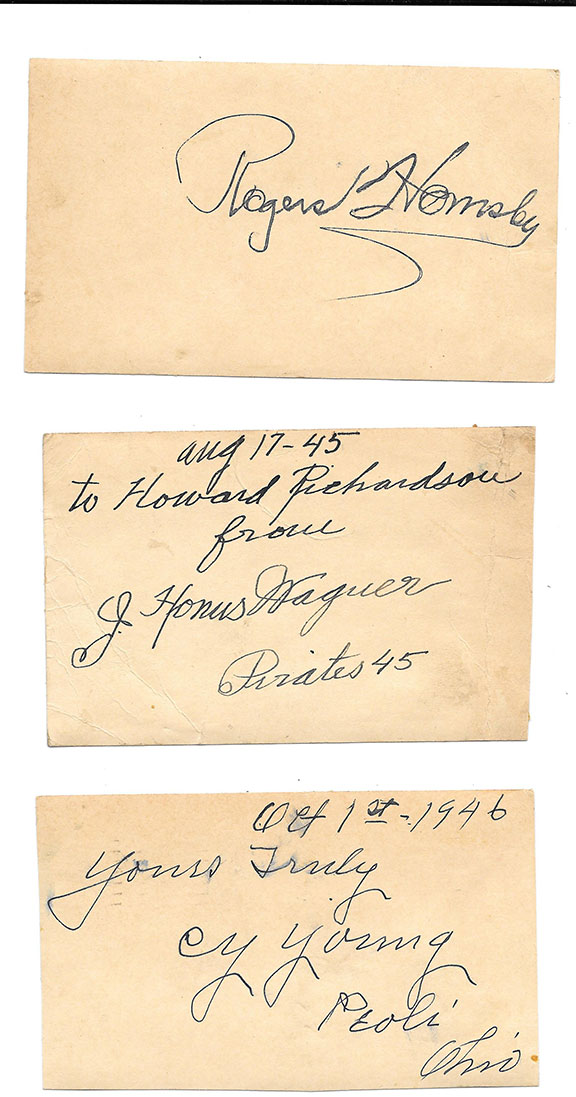 Rogers Hornsby
aug 17-45
to Howard Richardson
from
J. Honus Wagner
Pirates 45
Oct 1st-1946
Yours Truly
Cy Young
Peoli
Ohio